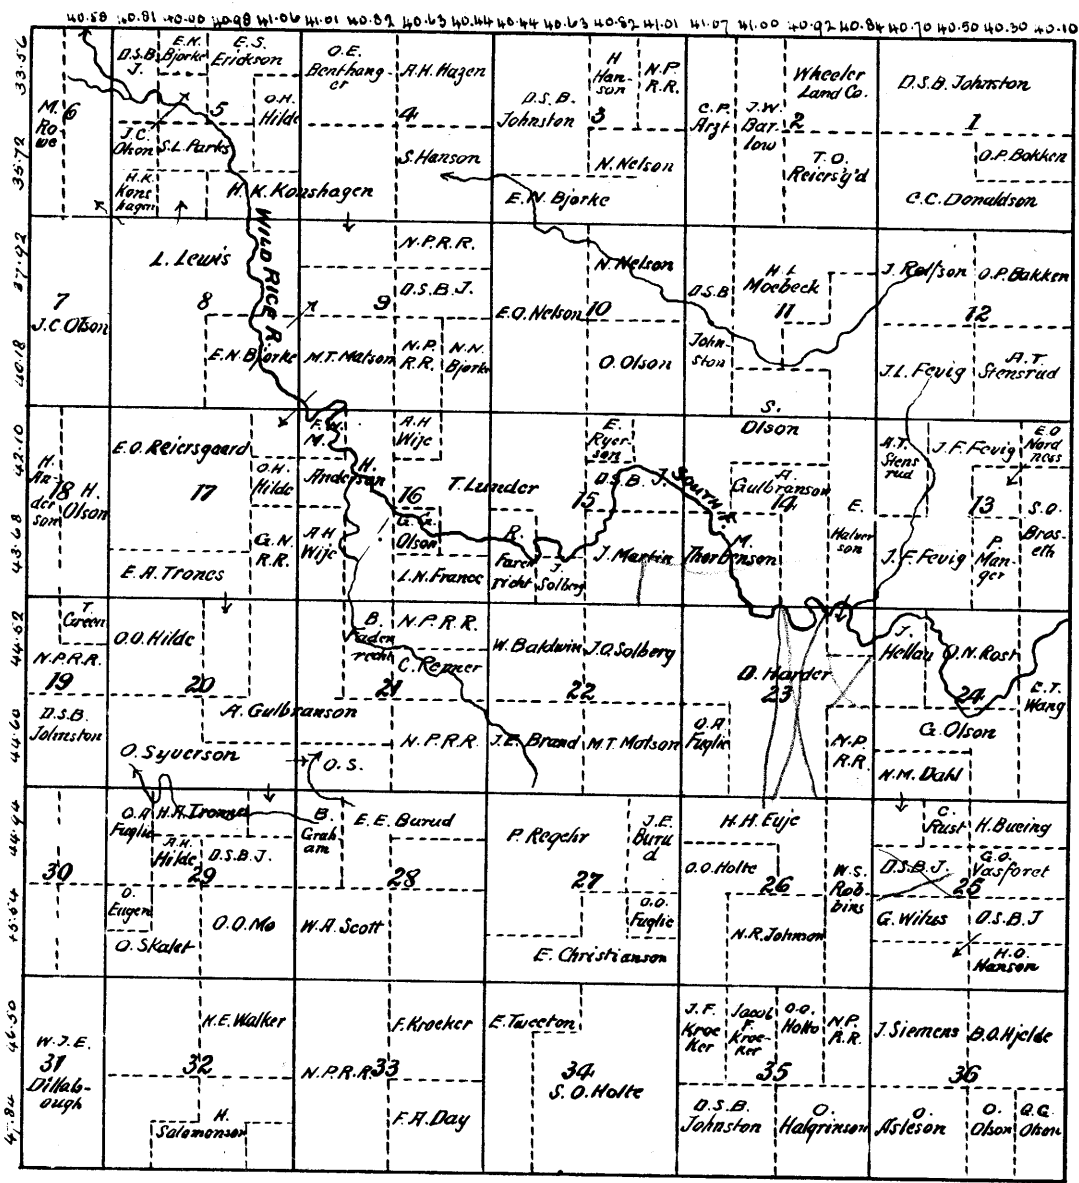 40.58 40.81 40.00 40.98 41.06 41.01 40.82 40.63 40.44 40.44 40.63 40.82 41.01 41.07 41.00 40.92 40.84 40.70 40.50 40.30 40.10
33.56
35.72
37.92
40.18
42.10
43.68
44.52
44.60
44.94
45.54
46.50
47.84
M. Ro-
we
6
D.S.B.
J.
E.K.
Bjorke
E.S.
Erickson
O.H.
Hilde
5
J.C.
Olson
S.L. Parks
H.K.
Kons
hagen
H.K. Konshagen
O.E.
Benthang-
er
A.H. Hagen
4
S. Hanson
D.S.B.
Johnston
H
Han-
son
N.P.
R.R.
3
N. Nelson
E.N. Bjorke
C.P.
Arzt
J.W.
Bar-
low
Wheeler
Land Co.
2
T.O.
Reiersg'd
D.S.B. Johnston
1
O.P. Bakken
C.C. Donaldson
7
J.C. Olson
L. Lewis
8
E.N. Bjorke
WILD RICE R.
N.P.R.R.
9
D.S.B.J.
M.T. Matson
N.P.
R.R.
N.N.
Bjorke
N. Nelson
E.O. Nelson
10
O. Olson
D.S.B
John-
ston
H L
Moebeck
11
S.
Olson
J. Rolfson
O.P. Bakken
12
J.L. Fevig
A.T.
Stensrud
H.
An-
der
son
18
H.
Olson
E.O. Reiersgaard
17
O.H.
Hilde
G.N.
R.R.
E.A. Trones
F.W.
M.
H.
Anderson
A.H
Wije
A.H
Wije
16
T. Lunder
G. G.
Olson
L.N. France
R.
Faren
richt
E.
Ryer-
son
D.S.B. J.
15
J.
Solberg
J. Martin
SOUTH
M.
Thorbenson
A.
Gulbranson
14
E.
Halver
son
A.T.
Stens
rud
J.F. Fevig
E.O
Nord
ness
13
S.O.
Bros-
eth
J.F. Fevig
P.
Man-
ger
T.
Green
N.P.R.R.
19
D.S.B.
Johnston
O.O. Hilde
20
A. Gulbranson
O. Syverson
B.
Faden
recht
N.P.R.R.
C. Remer
21
N.P.R.R.
O.S.
W. Baldwin
J.O. Solberg
22
J.E. Brand
M.T. Matson
D. Harder
23
O.A
Fuglie
N.P.
R.R.
J.
Hellau
O.N. Rost
24
E.T.
Wang
G. Olson
N.M. Dahl
30
O.A
Fuglie
H.A. Trones
A.H.
Hilde
D.S.B.J.
29
O.
Eugen
O. Skalet
O.O. Mo
B.
Grah
am
E.E. Burud
28
W.A. Scott
P. Regehr
J.E.
Buru
d
27
O.O.
Fuglie
E. Christianson
H.H. Evje
O.O. Holte
26
N.R. Johnson
W.S.
Rob-
bins
C.
Rust
H. Bueing
D.S.B.J.
G.O.
Vasforet
25
G. Wilus
D.S.B.J
H.O.
Hanson
W.J.E.
31
Dillab-
ough
H.E. Walker
32
H.
Salomonson
F. Kroeker
N.P.R.R.
33
F.A. Day
E. Tweeton
34
S.O. Holte
J.F.
Kroe
ker
Jacob
F.
Kroe-
ker
O.O.
Holto
N.P.
R.R.
35
D.S.B.
Johnston
O.
Halgrimson
J. Siemens
B.O. Hjelde
36
O.
Asleson
O.
Olson
O.G.
Olson